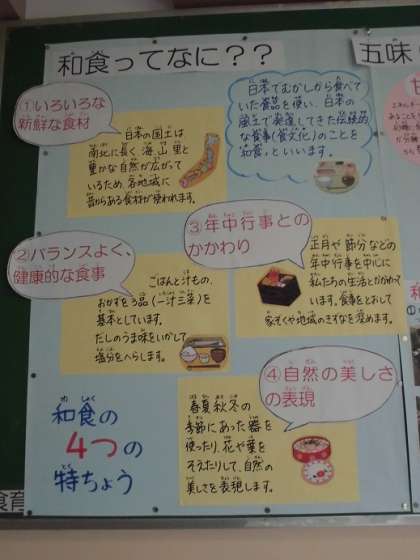 和食ってなに？？
日本でむかしから食べて
いた食品を使い、日本の
風土で発達してきた伝統的
な食事(食文化)のことを
"和食"といいます。
①いろいろな
新鮮な食材
日本の国土は
南北に長く、海、山、里と
豊かな自然が広がって
いるため、各地域に
昔からある食材が使われます。
②バランスよく、
健康的な食事
ごはんと汁もの、
おかずを3品(一汁三菜)を
基本としています。
だしのうま味をいかして
塩分をへらします。
③年中行事との
かかわり
正月や節分などの
年中行事を中心に
私たちの生活とかかわって
います。食事をとおして
家ぞくや地域のきずなを深めます。
④自然の美しさ
の表現
春夏秋冬の
季節にあった器を
使ったり、花や葉を
そえたりして、自然の
美しさを表現します。
和食の
4つの
特ちょう
五味
食育